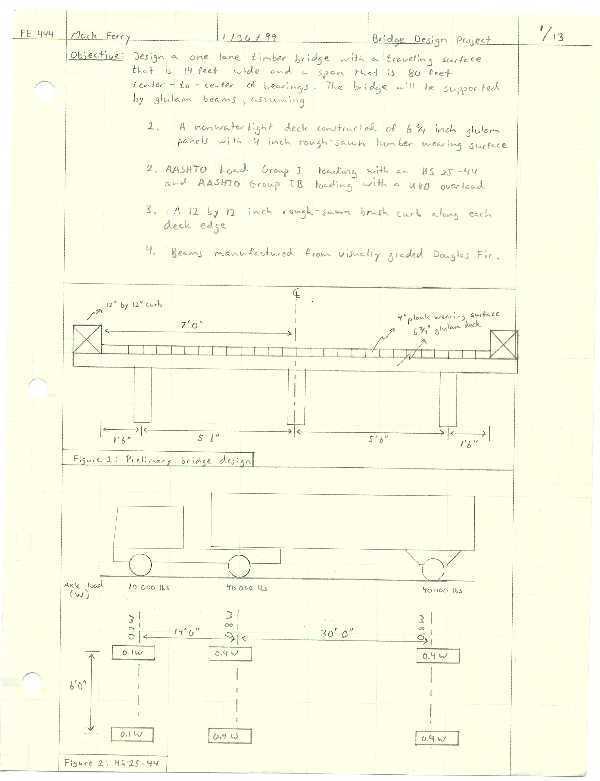 FE 444
Mack Ferry
Bridge Design Project
1/13
Objective: Design a one lane timber bridge with a traveling surface
that is 14 feet wide and a span that is 80 feet
center-to-center of bearings. The bridge will be supported
by glulam beams, assuming
1. A nonwatertight deck constructed of 6 3/4 inch glulam
panels with 4 inch rough-sawn lumber wearing surface
2. AASHTO Load Group I loading with an HS 25-44
and AASHTO Group IB loading with a U80 overload
3. A 12 by 12 inch rough-sawn brush curb along each
deck edge
4. Beams manufactured from visually graded Douglas Fir.
℄
12" by 12" curb
7'0"
4" plank wearing surface
6 3/4" glulam deck
1'6"
5'6"
1'6"
Figure 1: Prelimary bridge design
Axle load
(W)
10 000 lbs
40 000 lbs
40 000 lbs
14'0"
30'0"
0.1W
0.4W
0.4W
6'0"
0.1W
0.4W
0.4W
Figure 2: HS 25-44